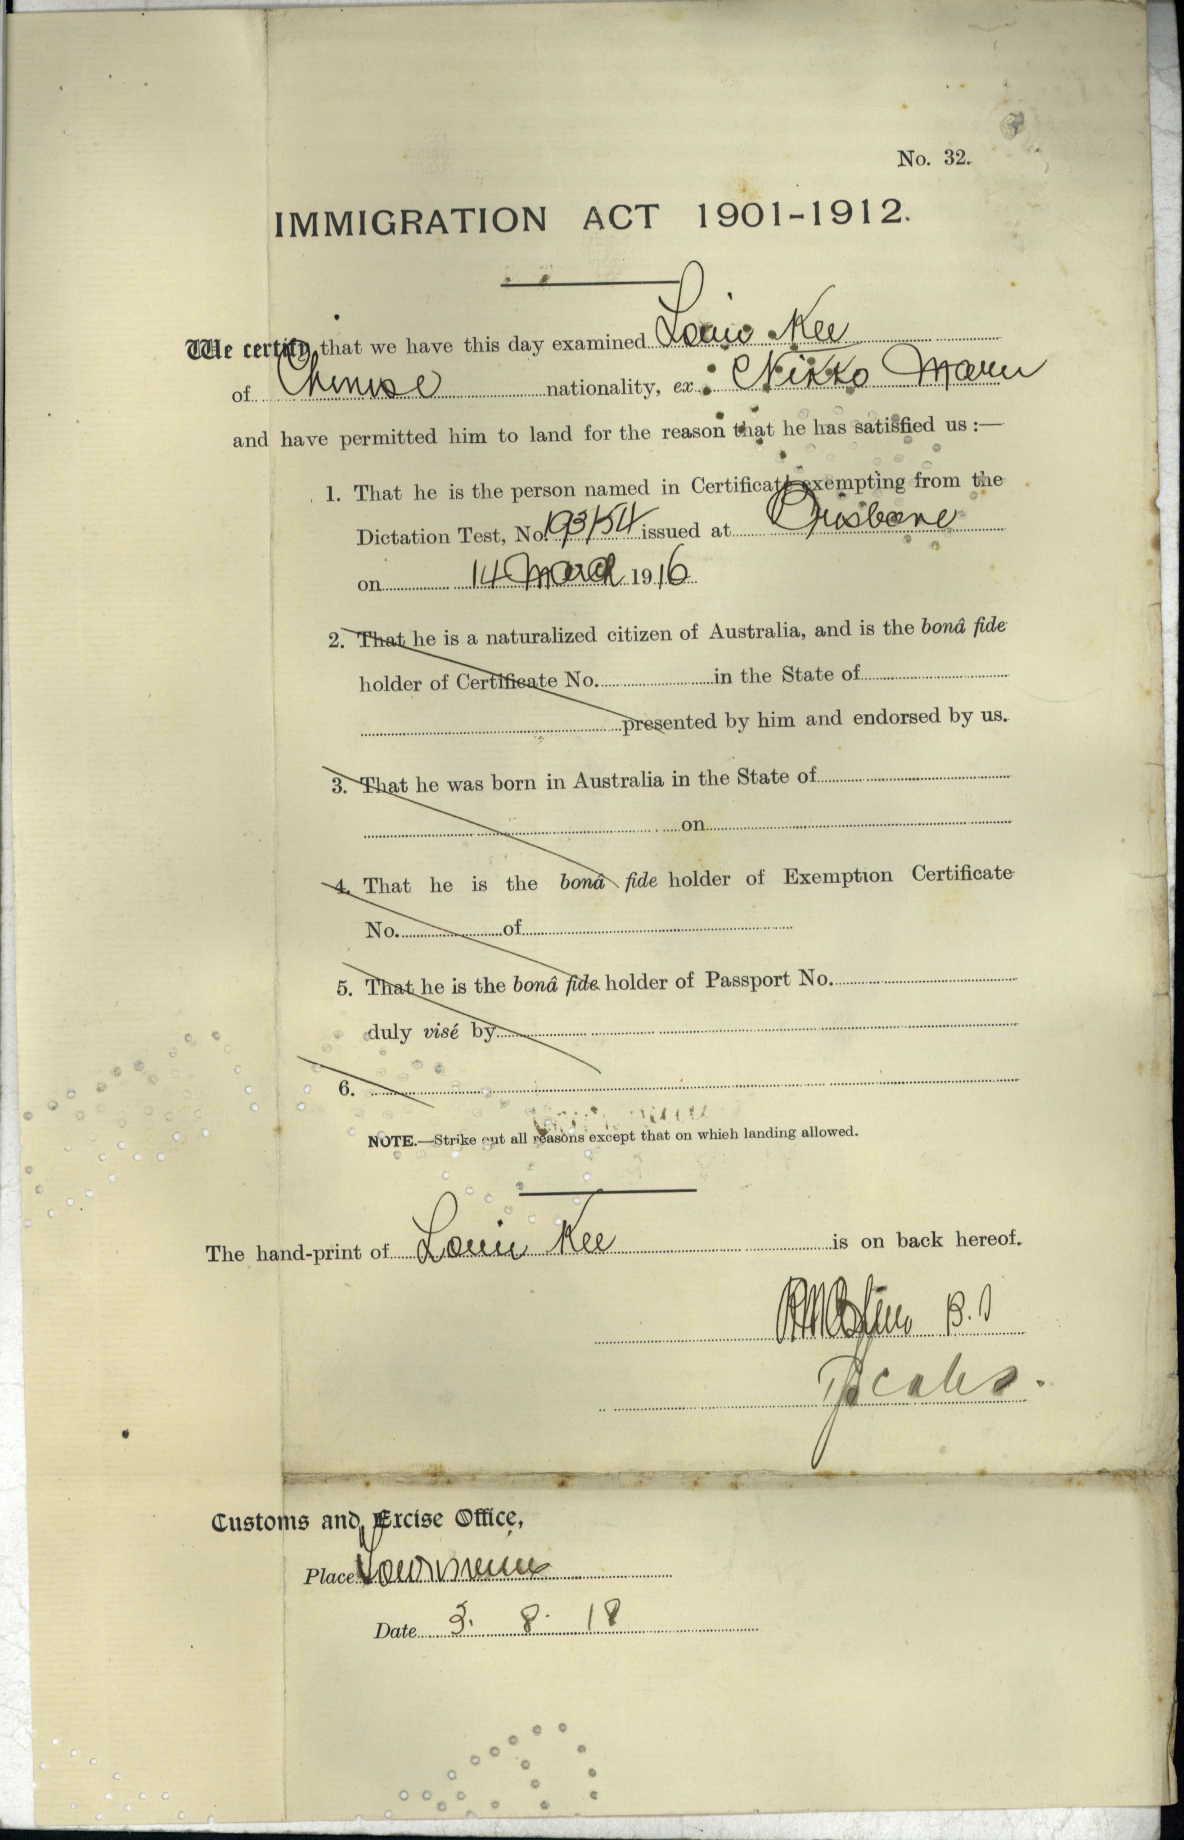 No. 32.
IMMIGRATION ACT 1901-1912.
We certify that we have this day examined Louis Kee
of Chinese nationality, ex Nikko Maru
and have permitted him to land for the reason that he has satisfied us :—
1. That he is the person named in Certificate exempting from the
Dictation Test, No. 193/54 issued at Brisbane
on 14 March 1916
2. That he is a naturalized citizen of Australia, and is the bonâ fide
holder of Certificate No. in the State of
presented by him and endorsed by us.
3. That he was born in Australia in the State of
on
4. That he is the bonâ fide holder of Exemption Certificate
No. of
5. That he is the bonâ fide holder of Passport No.
duly visé by
6.
NOTE.—Strike out all reasons except that on which landing allowed.
The hand-print of Louis Kee is on back hereof.
Customs and Excise Office,
Place Townsville
Date 3. 8. 18